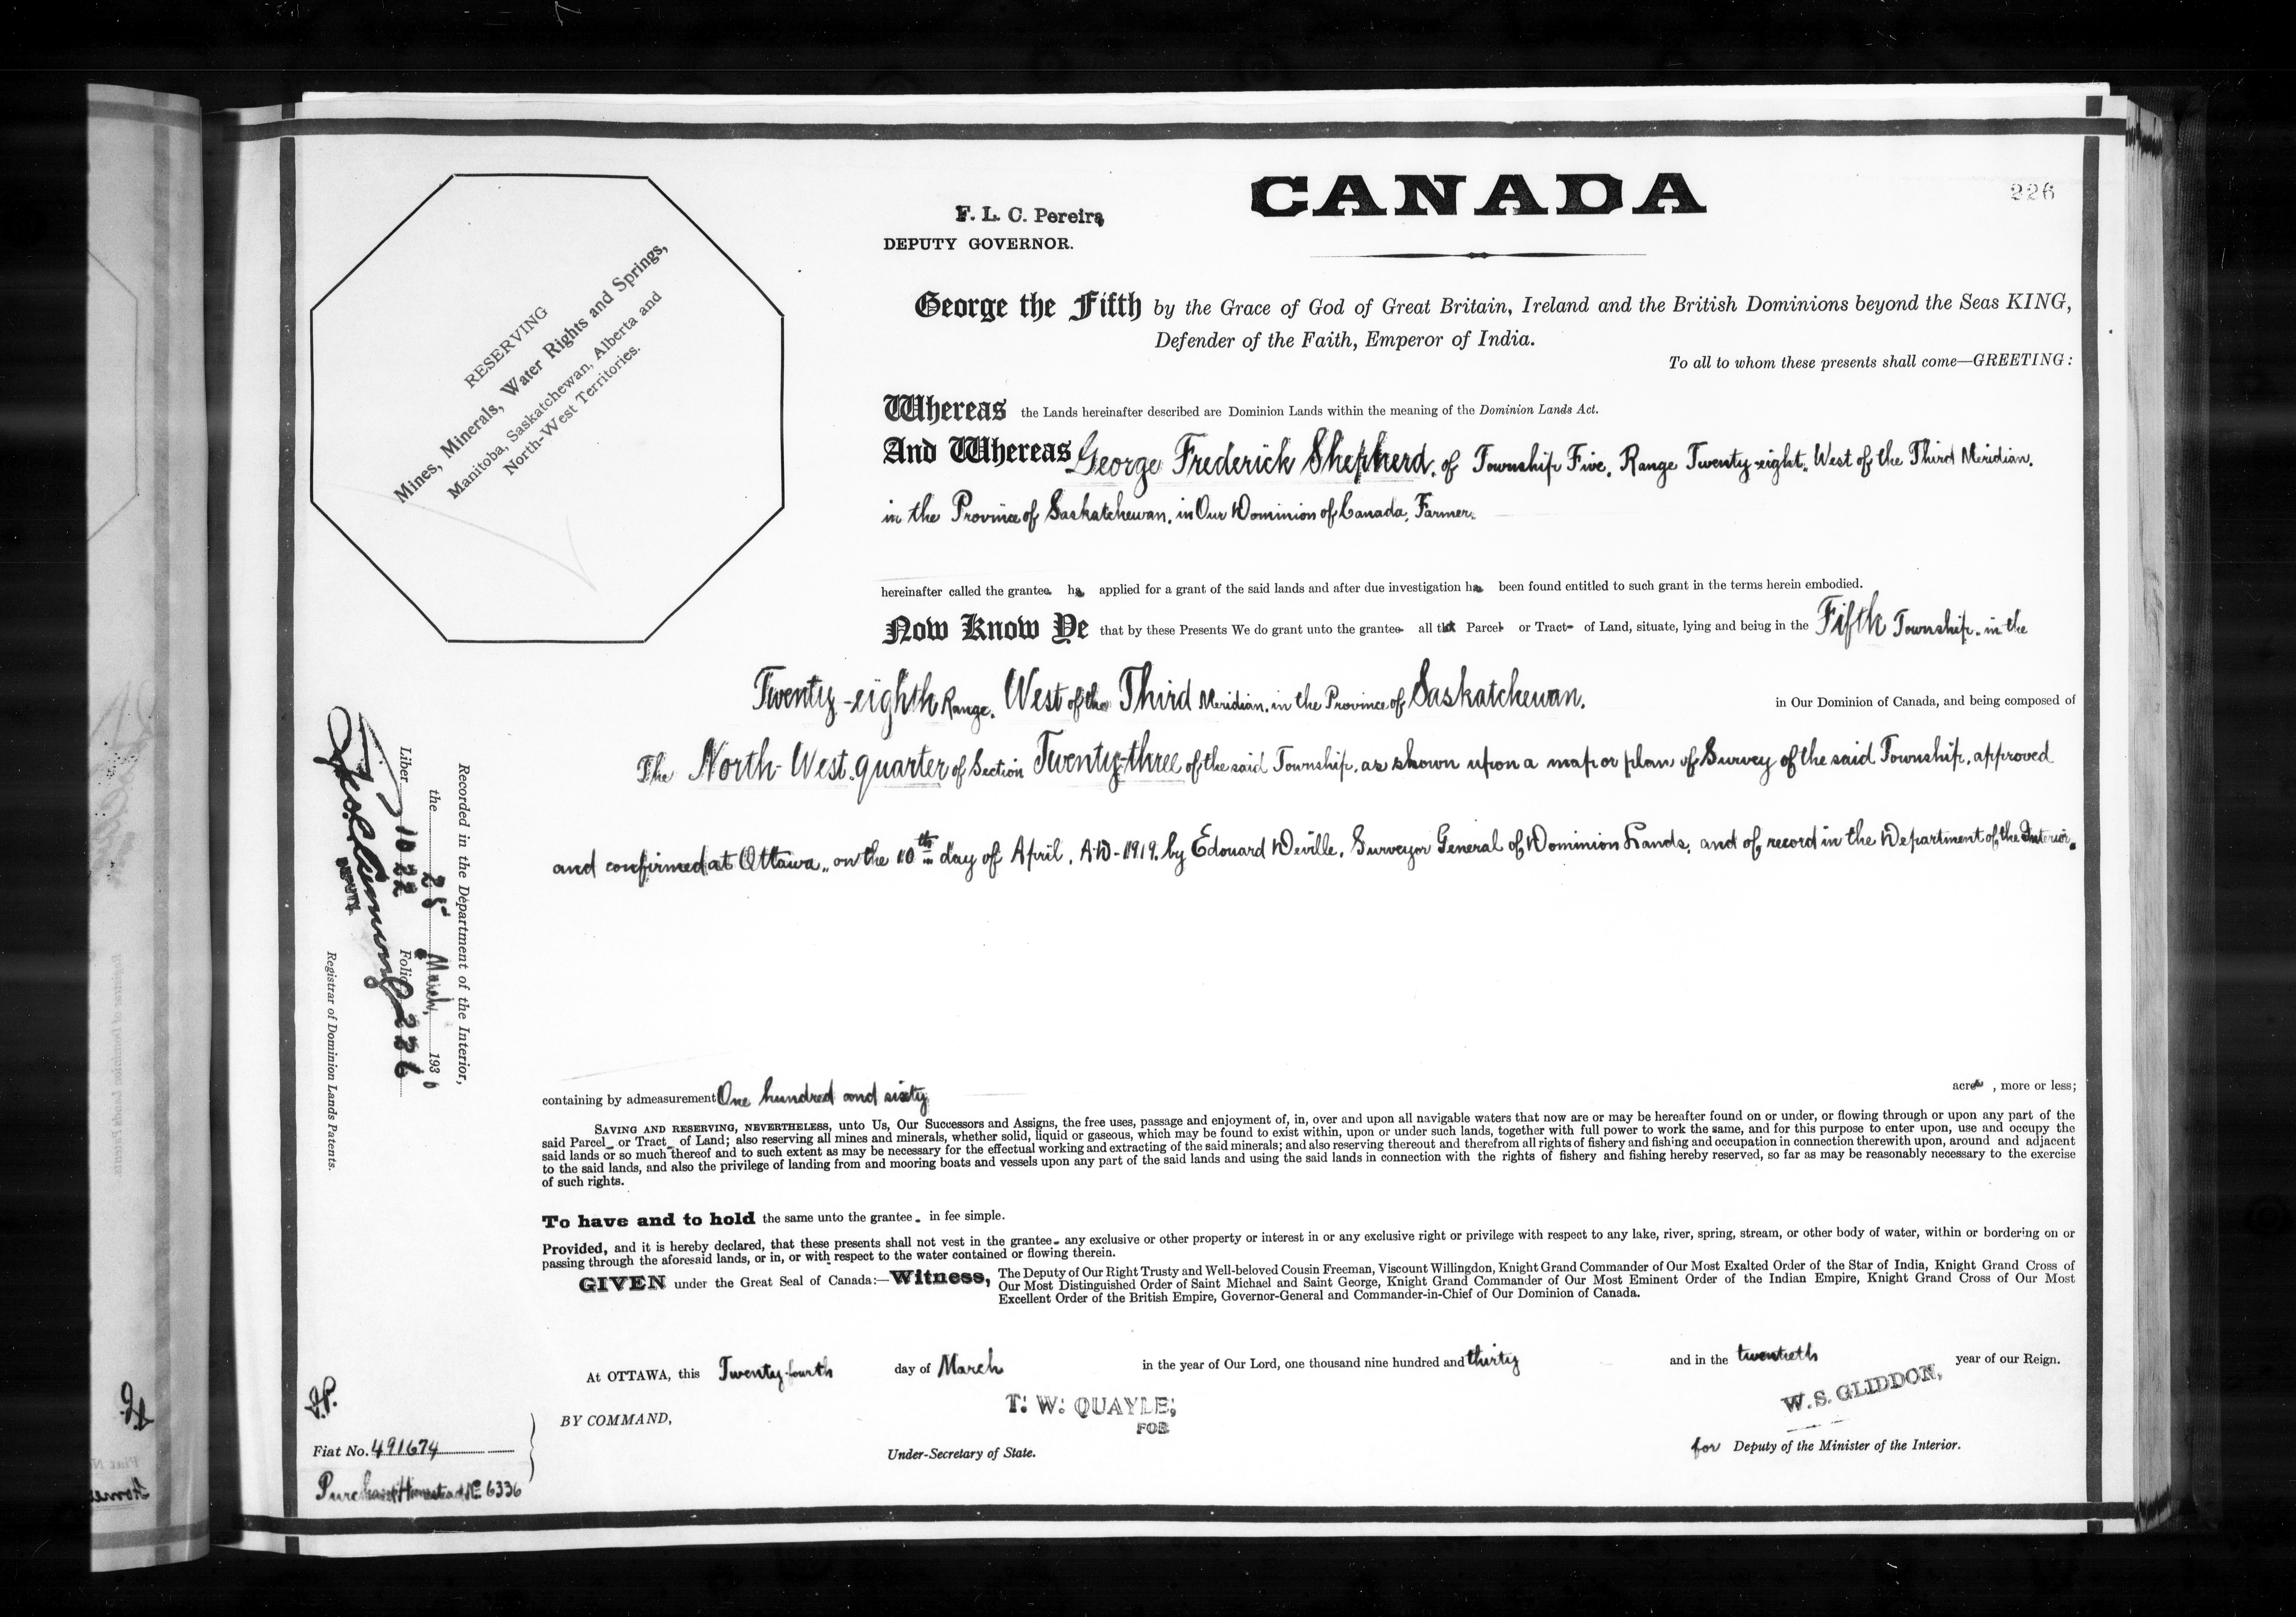 CANADA
226
F. L. C. Pereira
DEPUTY GOVERNOR.
RESERVING
Mines, Minerals, Water Rights and Springs,
Manitoba, Saskatchewan, Alberta and
North-West Territories.
George the Fifth by the Grace of God of Great Britain, Ireland and the British Dominions beyond the Seas KING,
Defender of the Faith, Emperor of India.
To all to whom these presents shall come—GREETING:
Whereas the Lands hereinafter described are Dominion Lands within the meaning of the Dominion Lands Act.
And Whereas George Frederick Shepherd, of Township Five, Range Twenty-eight, West of the Third Meridian,
in the Province of Saskatchewan, in Our Dominion of Canada, Farmer,
hereinafter called the grantee has applied for a grant of the said lands and after due investigation has been found entitled to such grant in the terms herein embodied.
Now Know Ye that by these Presents We do grant unto the grantee all that Parcel or Tract of Land, situate, lying and being in the Fifth Township, in the
Twenty-eighth Range, West of the Third Meridian, in the Province of Saskatchewan, in Our Dominion of Canada, and being composed of
The North-West quarter of Section Twenty-three of the said Township, as shown upon a map or plan of Survey of the said Township, approved
and confirmed at Ottawa, on the 10th day of April, A.D. 1919, by Edouard Deville, Surveyor General of Dominion Lands, and of record in the Department of the Interior.
containing by admeasurement One hundred and sixty acres, more or less;
SAVING AND RESERVING, NEVERTHELESS, unto Us, Our Successors and Assigns, the free uses, passage and enjoyment of, in, over and upon all navigable waters that now are or may be hereafter found on or under, or flowing through or upon any part of the
said Parcel or Tract of Land; also reserving all mines and minerals, whether solid, liquid or gaseous, which may be found to exist within, upon or under such lands, together with full power to work the same, and for this purpose to enter upon, use and occupy the
said lands or so much thereof and to such extent as may be necessary for the effectual working and extracting of the said minerals; and also reserving thereout and therefrom all rights of fishery and fishing and occupation in connection therewith upon, around and adjacent
to the said lands, and also the privilege of landing from and mooring boats and vessels upon any part of the said lands and using the said lands in connection with the rights of fishery and fishing hereby reserved, so far as may be reasonably necessary to the exercise
of such rights.
To have and to hold the same unto the grantee in fee simple.
Provided, and it is hereby declared, that these presents shall not vest in the grantee any exclusive or other property or interest in or any exclusive right or privilege with respect to any lake, river, spring, stream, or other body of water, within or bordering on or
passing through the aforesaid lands, or in, or with respect to the water contained or flowing therein.
GIVEN under the Great Seal of Canada:—Witness, The Deputy of Our Right Trusty and Well-beloved Cousin Freeman, Viscount Willingdon, Knight Grand Commander of Our Most Exalted Order of the Star of India, Knight Grand Cross of
Our Most Distinguished Order of Saint Michael and Saint George, Knight Grand Commander of Our Most Eminent Order of the Indian Empire, Knight Grand Cross of Our Most
Excellent Order of the British Empire, Governor-General and Commander-in-Chief of Our Dominion of Canada.
At OTTAWA, this Twenty-fourth day of March in the year of Our Lord, one thousand nine hundred and thirty and in the twentieth year of our Reign.
BY COMMAND,
T. W. QUAYLE,
FOR
Under-Secretary of State.
W. S. GLIDDON,
for Deputy of the Minister of the Interior.
Recorded in the Department of the Interior,
the 25 March, 1930
Liber 1022 Folio 226
DEPUTY
Registrar of Dominion Lands Patents.
Fiat No. 491674
Purchased Homestead No 6336